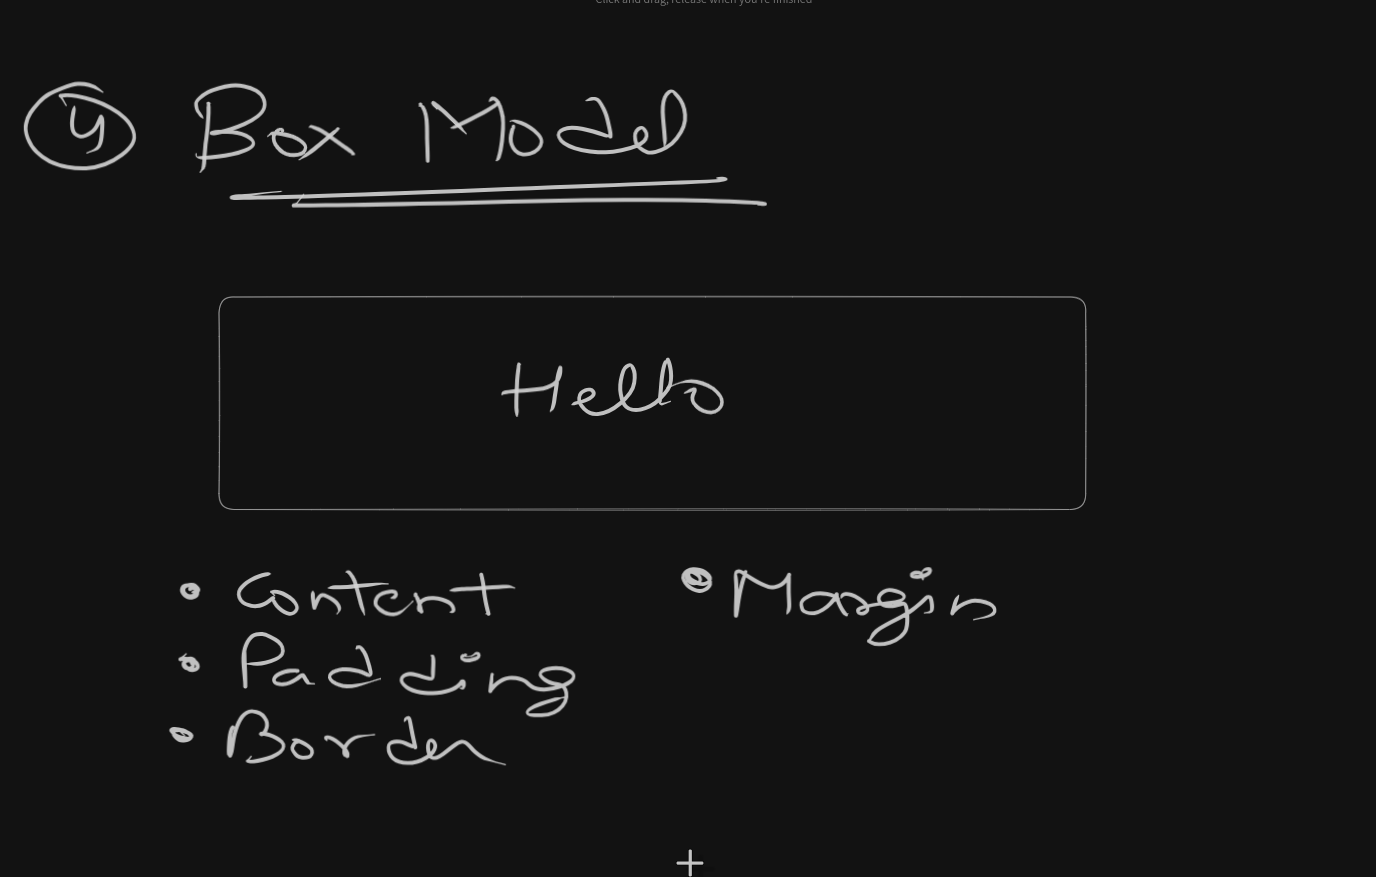 Click and drag, release when you're finished
4 Box Model
Hello
• Content
• Padding
• Border
• Margin